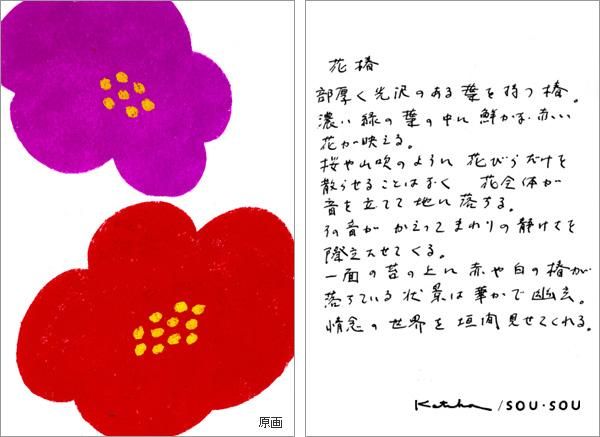 原画
花椿
部厚く光沢のある葉を持つ椿。
濃い緑の葉の中に鮮かな赤い
花が映える。
桜や山吹のように花びらだけを
散らせることはなく 花全体が
音を立てて地に落ちる。
その音が かえって まわりの静けさを
際立たせてくる。
一面の苔の上に赤や白の椿が
落ちている状景は華かで幽玄。
情念の世界を垣間見せてくれる。
Katsuji / SOU・SOU